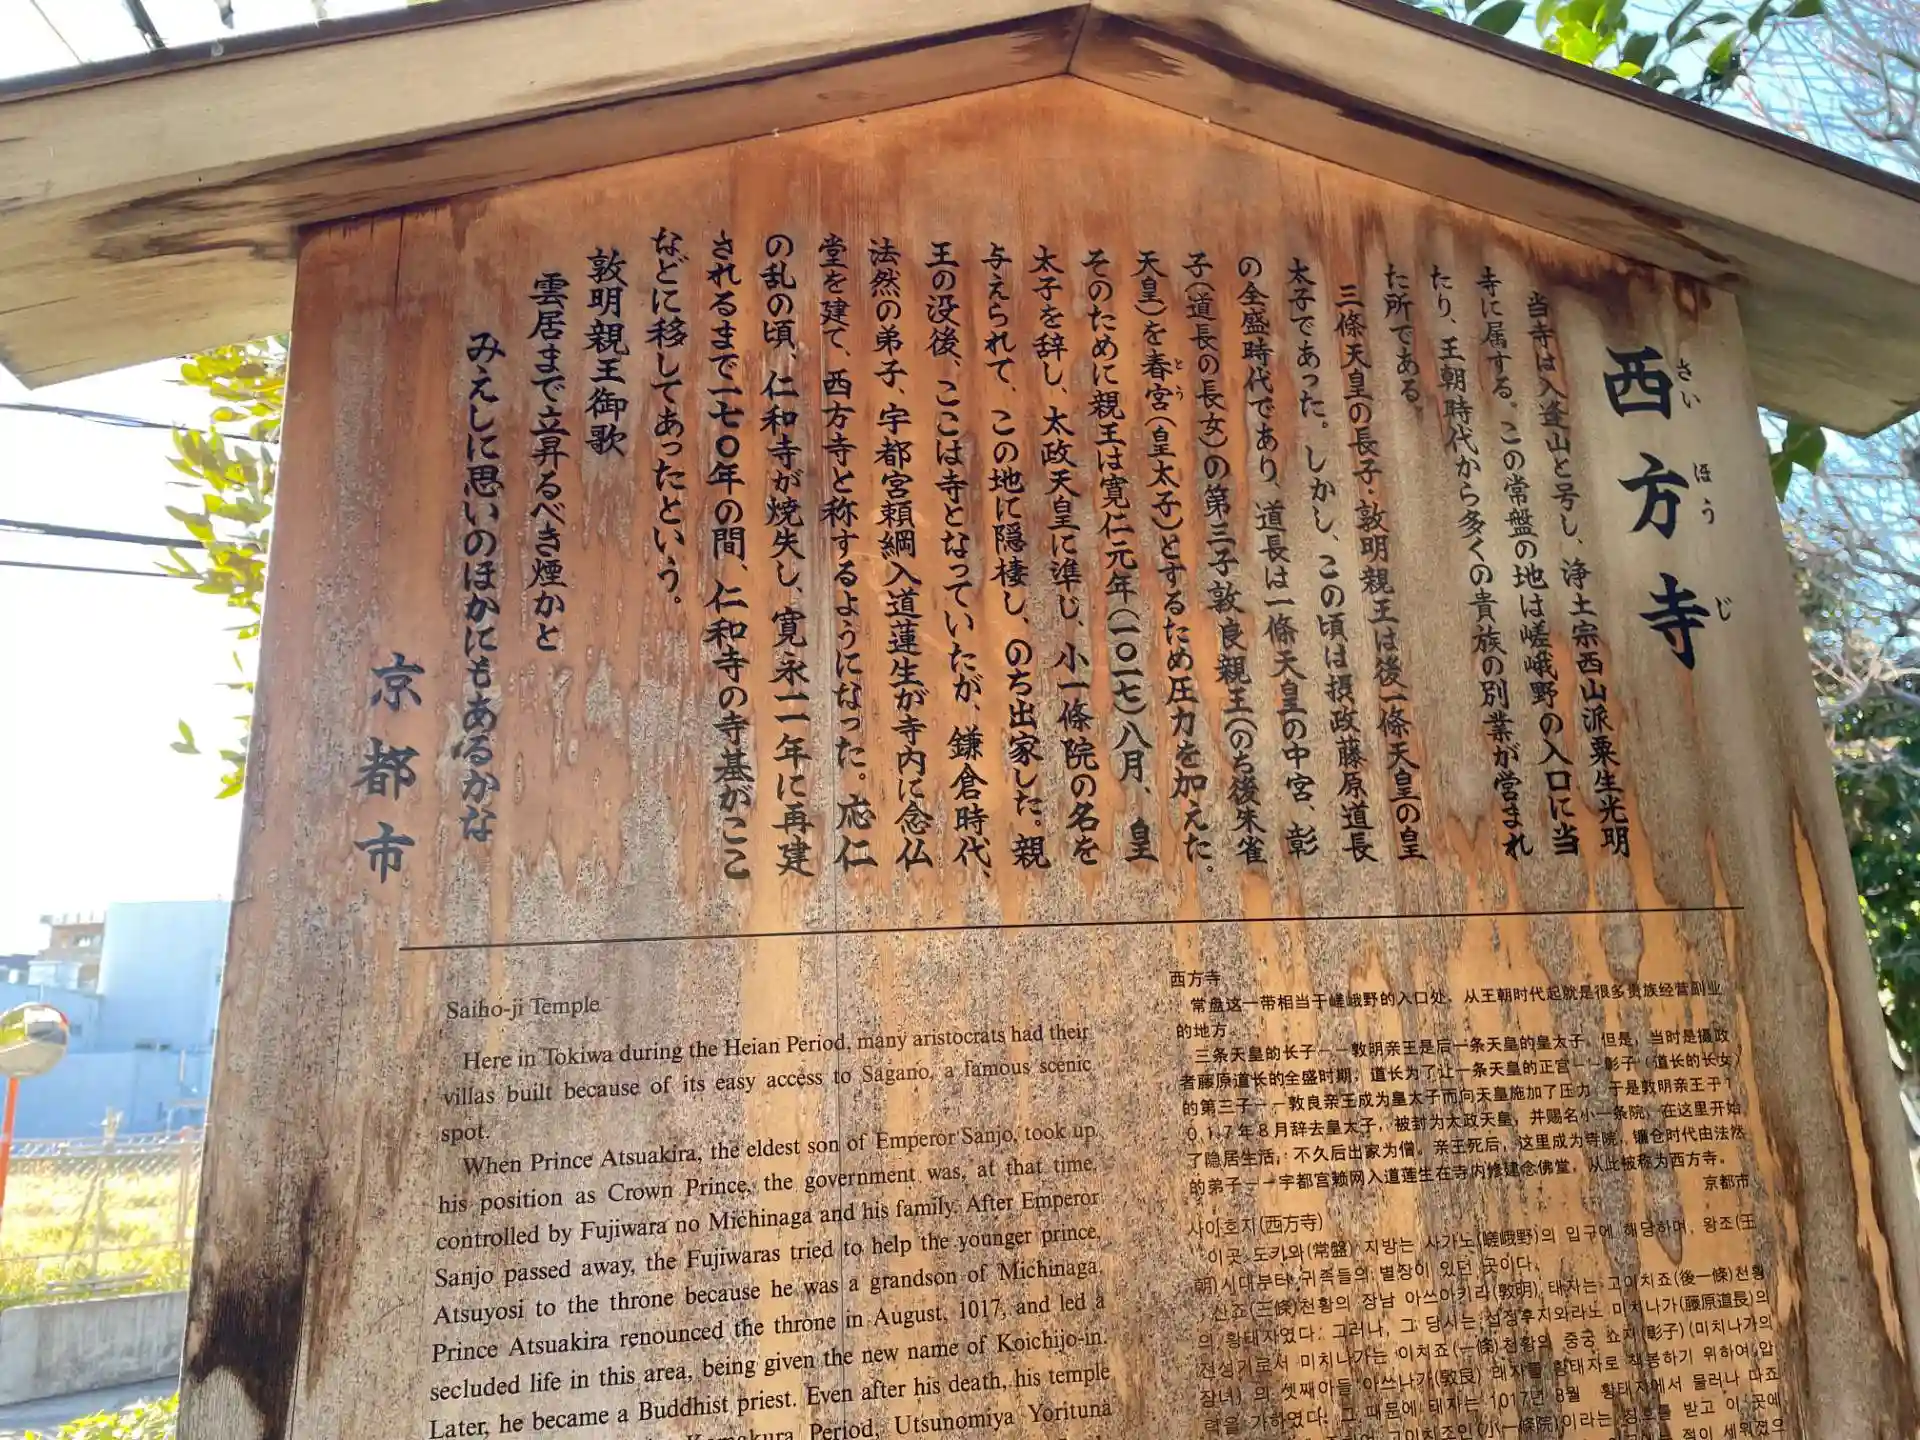 西方寺
さいほうじ
当寺は入逢山と号し、浄土宗西山派粟生光明
寺に属する。この常盤の地は嵯峨野の入口に当
たり、王朝時代から多くの貴族の別業が営まれ
た所である。
三條天皇の長子・敦明親王は後一條天皇の皇
太子であった。しかし、この頃は摂政藤原道長
の全盛時代であり、道長は一條天皇の中宮、彰
子(道長の長女)の第三子敦良親王(のち後朱雀
天皇)を春宮(皇太子)とするため圧力を加えた。
とうぐう
そのために親王は寛仁元年(一〇一七)八月、皇
太子を辞し、太政天皇に準じ、小一條院の名を
与えられて、この地に隠棲し、のち出家した。親
王の没後、ここは寺となっていたが、鎌倉時代、
法然の弟子、宇都宮頼綱入道蓮生が寺内に念仏
堂を建て、西方寺と称するようになった。応仁
の乱の頃、仁和寺が焼失し、寛永一一年に再建
されるまで一七〇年の間、仁和寺の寺基がここ
などに移してあったという。
敦明親王御歌
雲居まで立昇るべき煙かと
みえしに思いのほかにもあるかな
京都市
Saiho-ji Temple
Here in Tokiwa during the Heian Period, many aristocrats had their
villas built because of its easy access to Sagano, a famous scenic
spot.
When Prince Atsuakira, the eldest son of Emperor Sanjo, took up
his position as Crown Prince, the government was, at that time,
controlled by Fujiwara no Michinaga and his family. After Emperor
Sanjo passed away, the Fujiwaras tried to help the younger prince,
Atsuyosi to the throne because he was a grandson of Michinaga.
Prince Atsuakira renounced the throne in August, 1017, and led a
secluded life in this area, being given the new name of Koichijo-in.
Later, he became a Buddhist priest. Even after his death, his temple
Kamakura Period, Utsunomiya Yorituna
西方寺
常盘这一带相当于嵯峨野的入口处，从王朝时代起就是很多贵族经营副业
的地方。
三条天皇的长子——敦明亲王是后一条天皇的皇太子。但是，当时是摄政
者藤原道长的全盛时期；道长为了让一条天皇的正宫——彰子（道长的长女）
的第三子——敦良亲王成为皇太子而向天皇施加了压力，于是敦明亲王于1
0 1 7年8月辞去皇太子，被封为太政天皇，并赐名小一条院，在这里开始
了隐居生活，不久后出家为僧。亲王死后，这里成为寺院，镰仓时代由法然
的弟子——宇都宫赖网入道莲生在寺内修建念佛堂，从此被称为西方寺。
京都市
사이호지(西方寺)
이곳 도키와(常盤) 지방는 사가노(嵯峨野)의 입구에 해당하며, 왕조(王
朝)시대부터 귀족들의 별장이 있던 곳이다.
산죠(三條)천황의 장남 아쓰아키라(敦明) 태자는 고이치죠(後一條)천황
의 황태자였다. 그러나, 그 당시는 섭정후지와라노 미치나가(藤原道長)의
전성기로서 미치나가는 이치죠(一條)천황의 중궁 쇼시(彰子)(미치나가의
장녀)의 셋째아들 아쓰나가(敦良) 태자를 황태자로 책봉하기 위하여 압
력을 가하였다. 그 때문에 태자는 1017년 8월 황태자에서 물러나 다죠
고이치죠인(小一條院)이라는 칭호를 받고 이 곳에